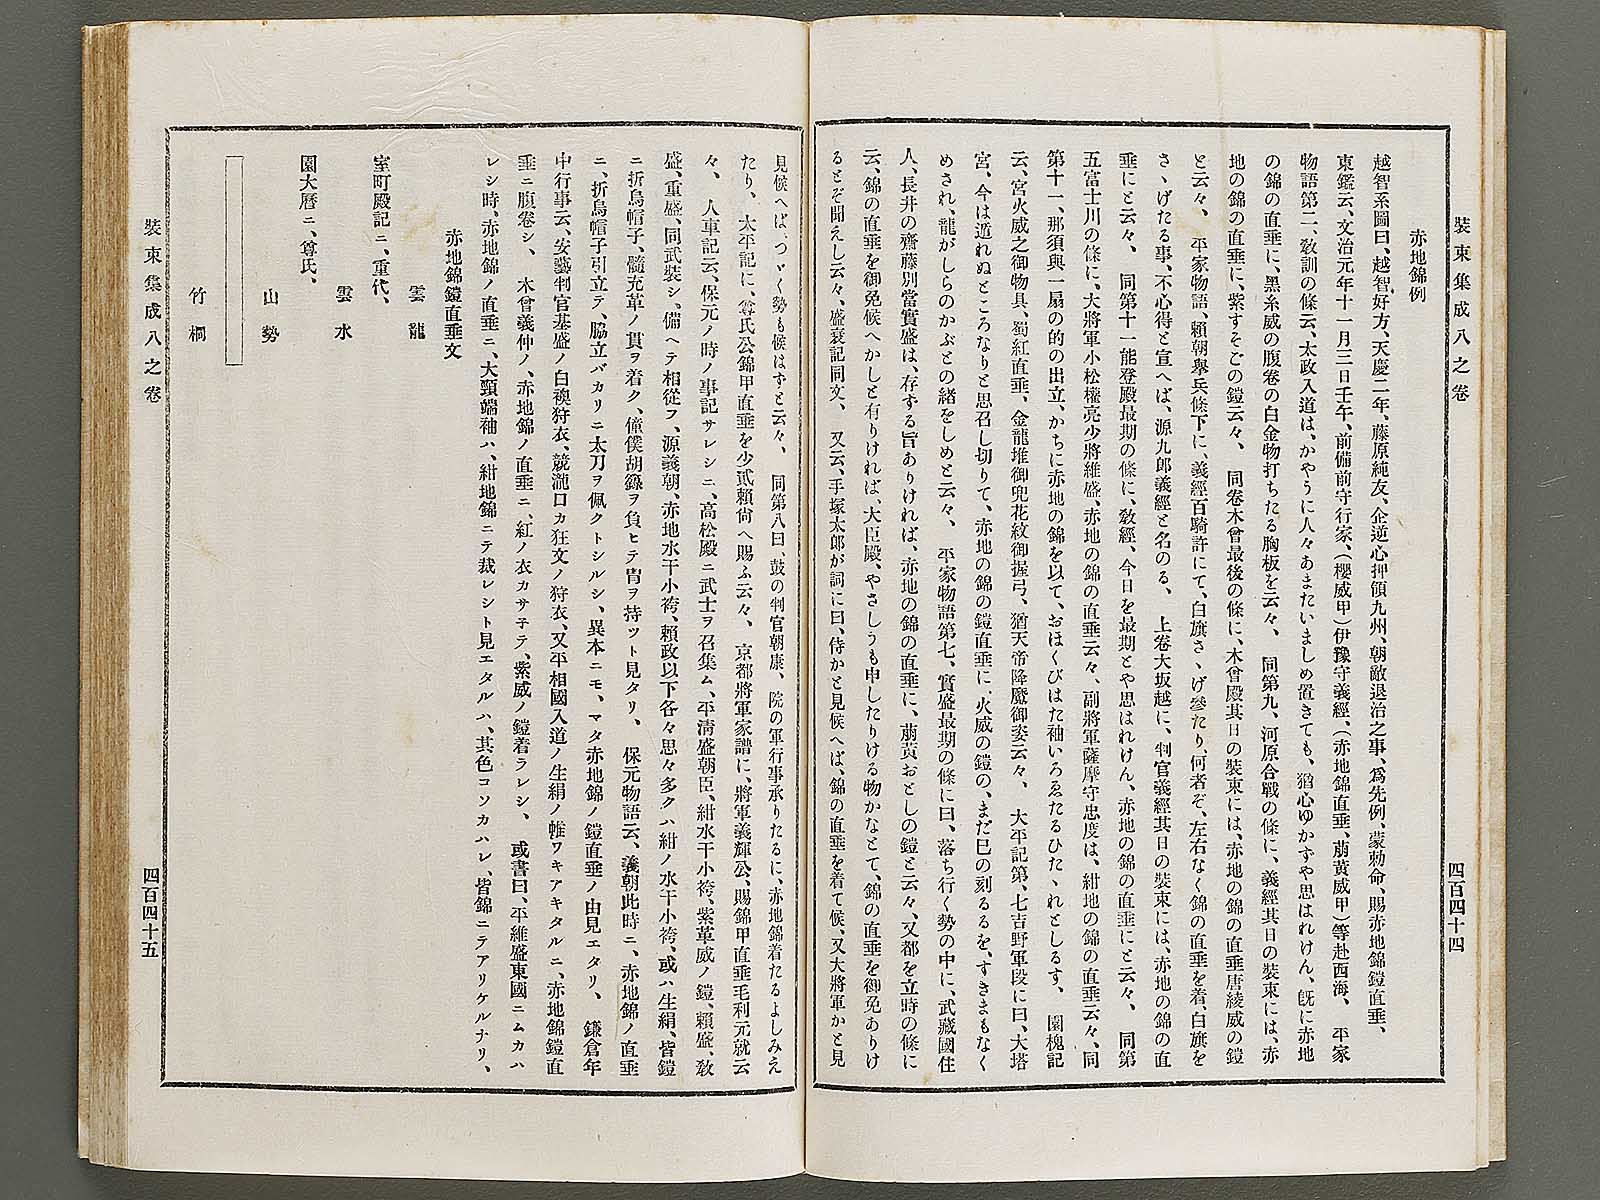 裝束集成八之卷
四百四十四
赤地錦例
越智系圖曰、越智好方、天慶二年、藤原純友、企逆心押領九州、朝敵退治之事、爲先例、蒙勅命、賜赤地錦鎧直垂、
東鑑云、文治元年十一月三日壬午、前備前守行家、(櫻威甲)伊豫守義經、(赤地錦直垂、萠黄威甲)等赴西海、 平家
物語第二、敎訓の條云、太政入道は、かやうに人々あまたいましめ置きても、猶心ゆかずや思はれけん、旣に赤地
の錦の直垂に、黑糸威の腹卷の白金物打ちたる胸板を云々、 同第九、河原合戰の條に、義經其日の裝束には、赤
地の錦の直垂に、紫すそごの鎧云々、 同卷木曾最後の條に、木曾殿其日の裝束には、赤地の錦の直垂唐綾威の鎧
と云々、 平家物語、賴朝擧兵條下に、義經百騎許にて、白旗さゝげ參たり、何者ぞ、左右なく錦の直垂を着、白旗を
さゝげたる事、不心得と宣へば、源九郎義經と名のる、 上卷大坂越に、判官義經其日の裝束には、赤地の錦の直
垂にと云々、 同第十一能登殿最期の條に、敎經、今日を最期とや思はれけん、赤地の錦の直垂にと云々、 同第
五富士川の條に、大將軍小松權亮少將維盛、赤地の錦の直垂云々、副將軍薩摩守忠度は、紺地の錦の直垂云々、同
第十一、那須與一扇の的の出立、かちに赤地の錦を以て、おほくびはた袖いろゑたるひたゝれとしるす、 園槐記
云、宮火威之御物具、蜀紅直垂、金龍堆御兜花紋御握弓、猶天帝降魔御姿云々、 大平記第、七吉野軍段に曰、大塔
宮、今は遁れぬところなりと思召し切りて、赤地の錦の鎧直垂に、火威の鎧の、まだ巳の刻るるを、すきまもなく
めされ、龍がしらのかぶとの緖をしめと云々、 平家物語第七、實盛最期の條に曰、落ち行く勢の中に、武藏國住
人、長井の齋藤別當實盛は、存する旨ありければ、赤地の錦の直垂に、萠黃おどしの鎧と云々、又都を立時の條に
云、錦の直垂を御免候へかしと有りければ、大臣殿、やさしうも申したりける物かなとて、錦の直垂を御免ありけ
るとぞ聞えし云々、盛衰記同文、 又云、手塚太郎が詞に曰、侍かと見候へば、錦の直垂を着て候、又大將軍かと見
見候へば、つゞく勢も候はずと云々、 同第八曰、鼓の判官朝康、院の軍行事承りたるに、赤地錦着たるよしみえ
たり、 太平記に、尊氏公錦甲直垂を少貳賴尙へ賜ふ云々、 京都將軍家譜に、將軍義輝公、賜錦甲直垂毛利元就云
々、 人車記云、保元ノ時ノ事記サレシニ、高松殿ニ武士ヲ召集ム、平淸盛朝臣、紺水干小袴、紫革威ノ鎧、賴盛、敎
盛、重盛、同武裝シ、備ヘテ相從フ、源義朝、赤地水干小袴、賴政以下各々思々多クハ紺ノ水干小袴、或ハ生絹、皆鎧
ニ折烏帽子、髓充革ノ貫ヲ着ク、僮僕胡籙ヲ負ヒテ冑ヲ持ツト見タリ、 保元物語云、義朝此時ニ、赤地錦ノ直垂
ニ、折烏帽子引立テ、脇立バカリニ太刀ヲ佩クトシルシ、異本ニモ、マタ赤地錦ノ鎧直垂ノ由見エタリ、 鎌倉年
中行事云、安藝判官基盛ノ白襖狩衣、競瀧口カ狂文ノ狩衣、又平相國入道ノ生絹ノ帷ワキアキタルニ、赤地錦鎧直
垂ニ腹卷シ、 木曾義仲ノ、赤地錦ノ直垂ニ、紅ノ衣カサ子テ、紫威ノ鎧着ラレシ、 或書曰、平維盛東國ニムカハ
レシ時、赤地錦ノ直垂ニ、大頸端袖ハ、紺地錦ニテ裁レシト見エタルハ、其色コソカハレ、皆錦ニテアリケルナリ、
赤地錦鎧直垂文
雲龍
室町殿記ニ、重代、
雲水
園大曆ニ、尊氏、
山勢
竹桐
裝束集成八之卷
四百四十五